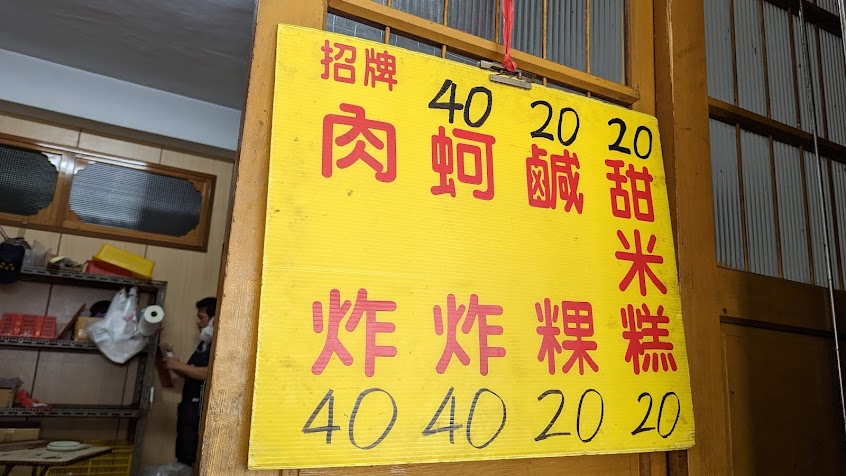 招牌
肉炸
40
40
蚵炸
40
20
鹹粿
20
20
甜米糕
20